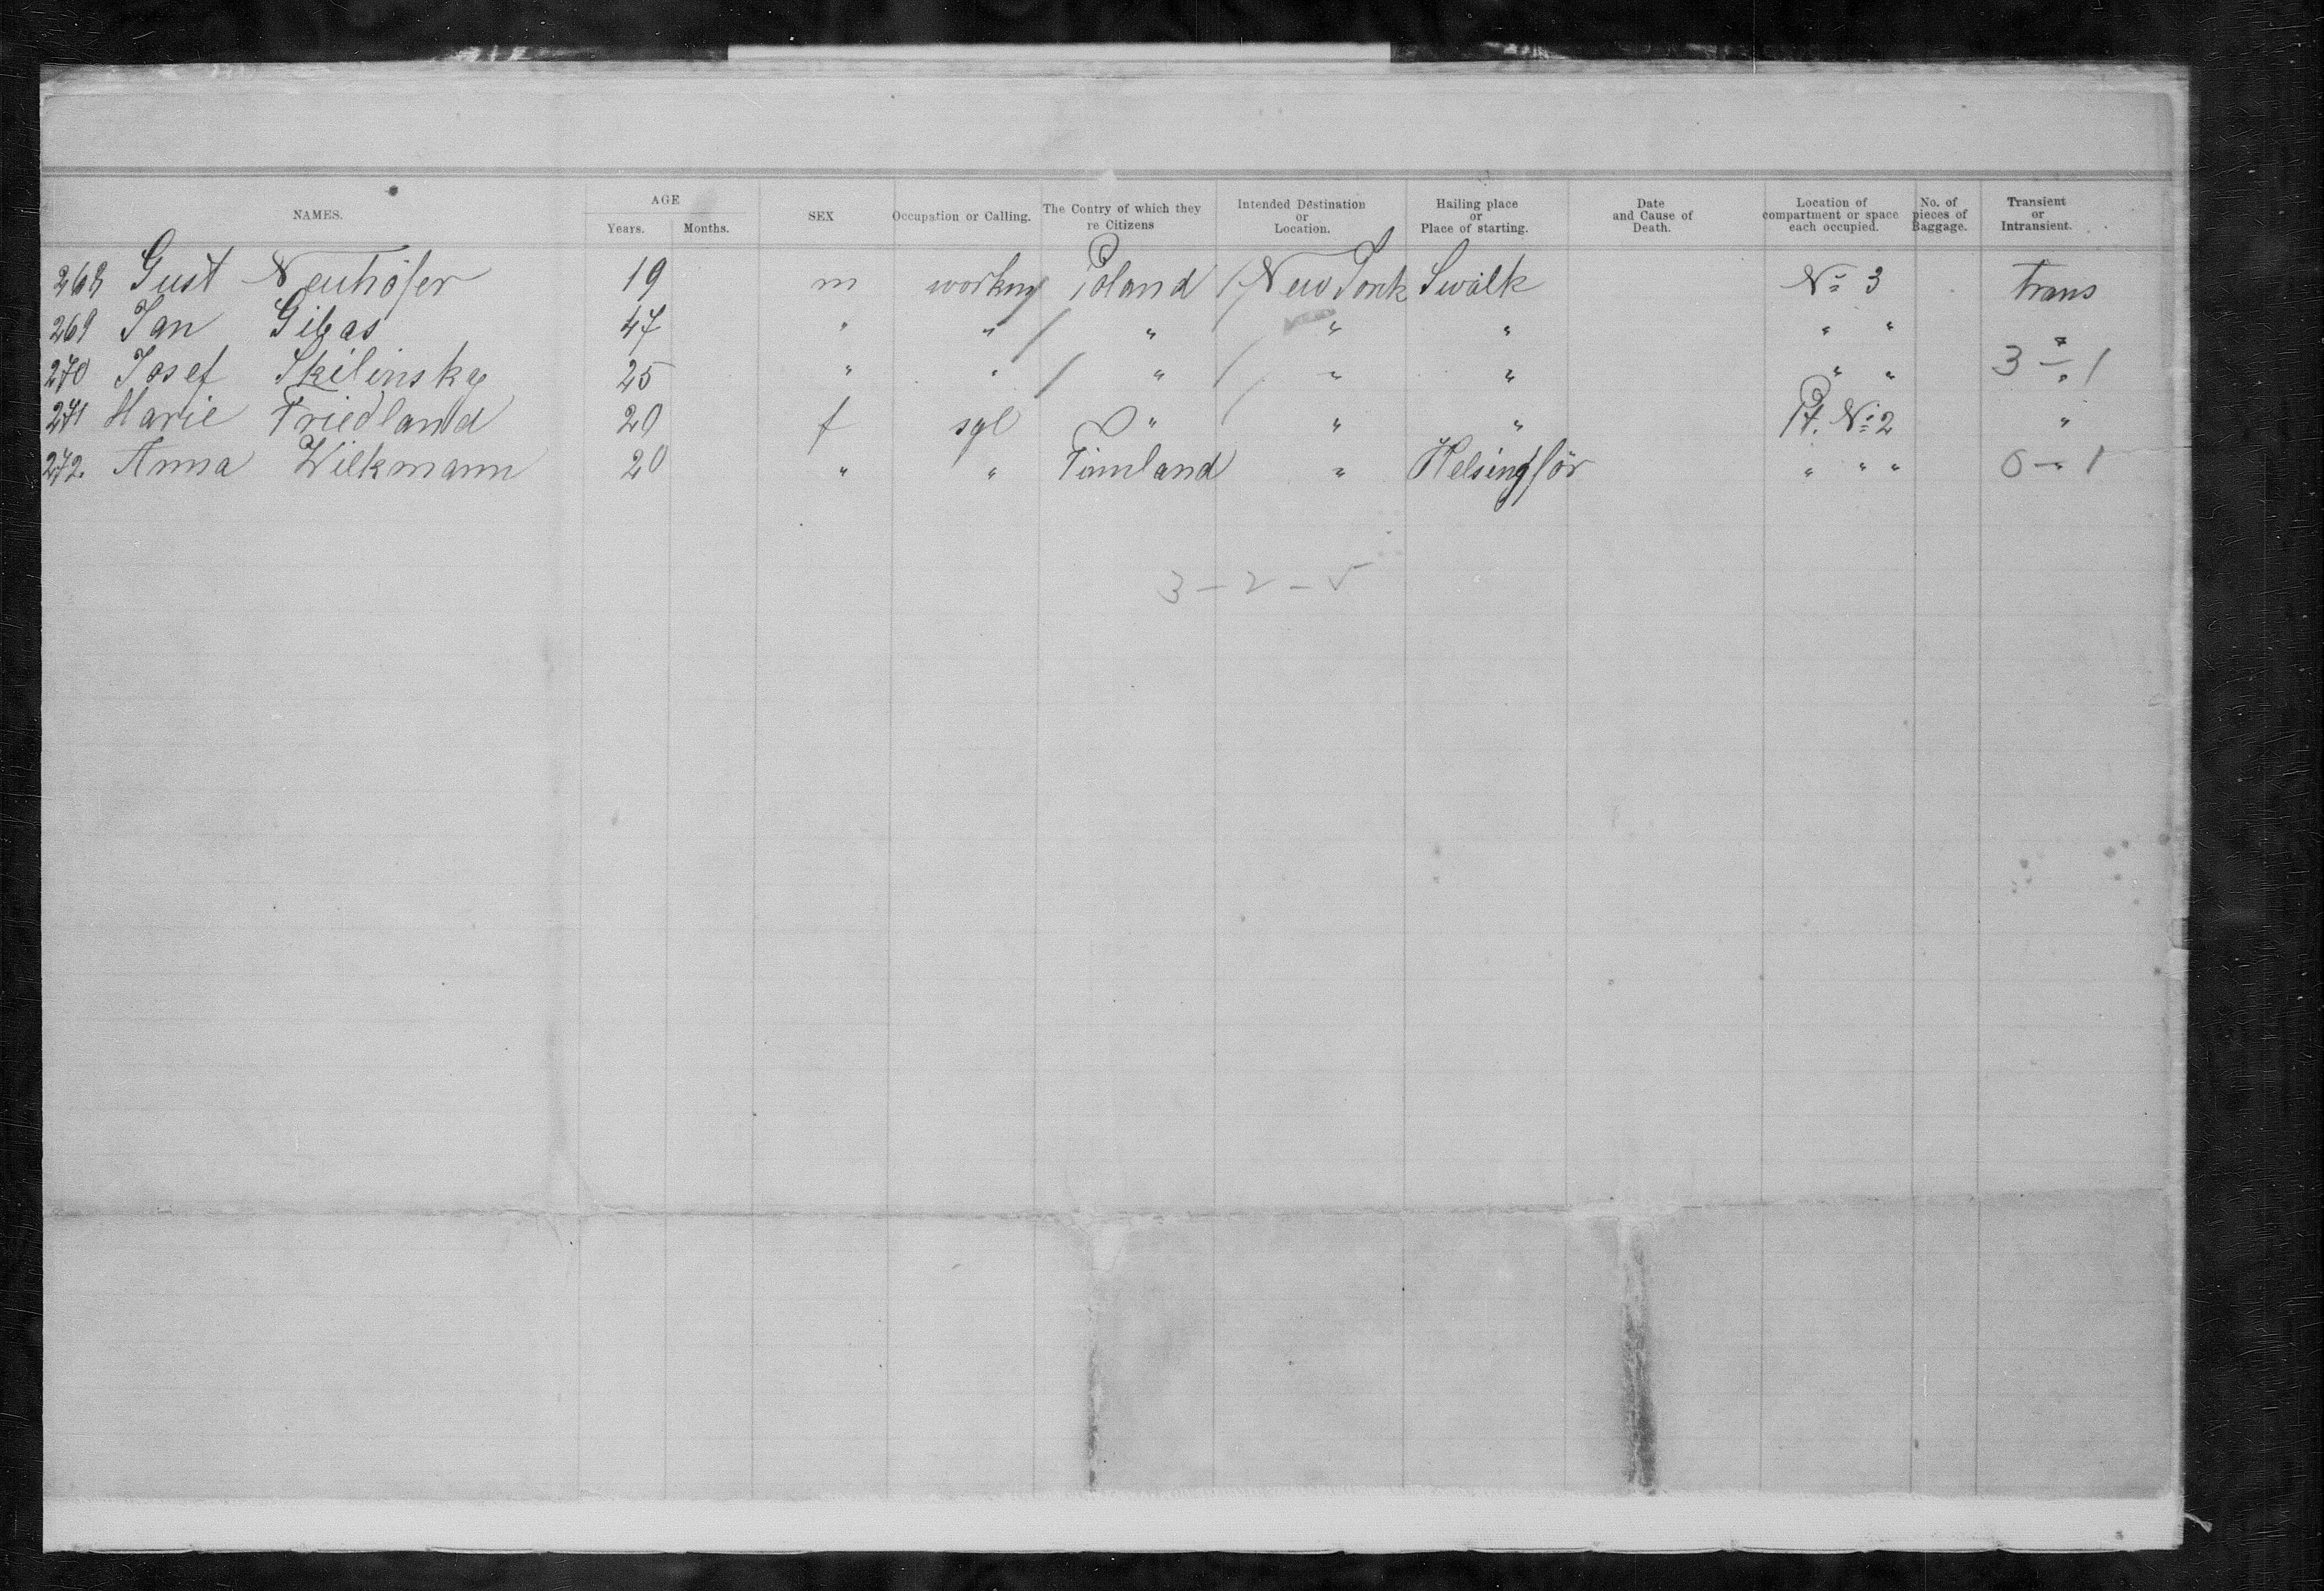 NAMES. AGE Years. Months. SEX Occupation or Calling. The Contry of which they re Citizens Intended Destination or Location. Hailing place or Place of starting. Date and Cause of Death. Location of compartment or space each occupied. No. of pieces of Baggage. Transient or Intransient.
268 Gust Neuhöfer 19 m workmg Poland / New York Swalk No 3 trans
269 Jan Gibas 47 " " / " " " " " "
270 Josef Skilinsky 25 " " / " / " " " " 3 – 1 "
271 Marie Friedland 20 f sgl " " " Pt. No 2 "
272. Anna Wilkmann 20 " " Finnland " Helsingför " " " 0 – 1
3 – 2 – 5